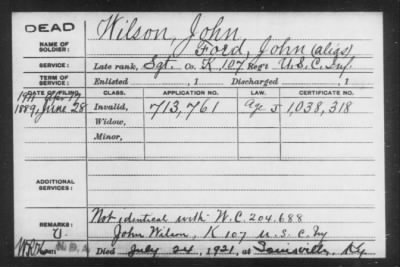 DEAD
Wilson, John
NAME OF SOLDIER:
Ford, John (alias)
SERVICE:
Late rank, Sgt. Co. K 107 Reg't U.S.C. Inf.
TERM OF SERVICE:
Enlisted , 1 Discharged , 1
DATE OF FILING. CLASS. APPLICATION NO. LAW. CERTIFICATE NO.
1889, June 28 Invalid, 713,761 Age 1,038,318
Widow,
Minor,
ADDITIONAL SERVICES:
REMARKS:
Not identical with W.C. 204.688
John Wilson, K 107 U.S.C. Inf
Died July 24, 1921, at Louisville, Ky